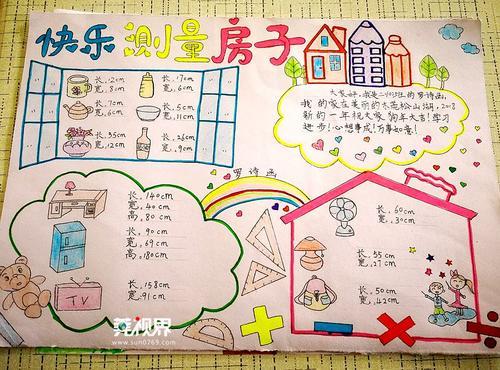 快乐测量房子
长:12cm
宽:8cm
长:17cm
宽:6cm
长:7cm
宽:6cm
长:5cm
宽:11cm
长:35cm
宽:12cm
长:26cm
宽:9cm
大家好,我是二(10)班的罗诗函。
我的家在美丽的水莲松山湖,2018
新的一年祝大家:狗年大吉!学习
进步!心想事成!万事如意!
罗诗函
长:140cm
宽:40cm
高:80cm
长:90cm
宽:69cm
高:180cm
TV
长:158cm
宽:91cm
长:60cm
宽:30cm
长:55cm
宽:27cm
长:50cm
宽:42cm
莞视界
www.sun0769.com